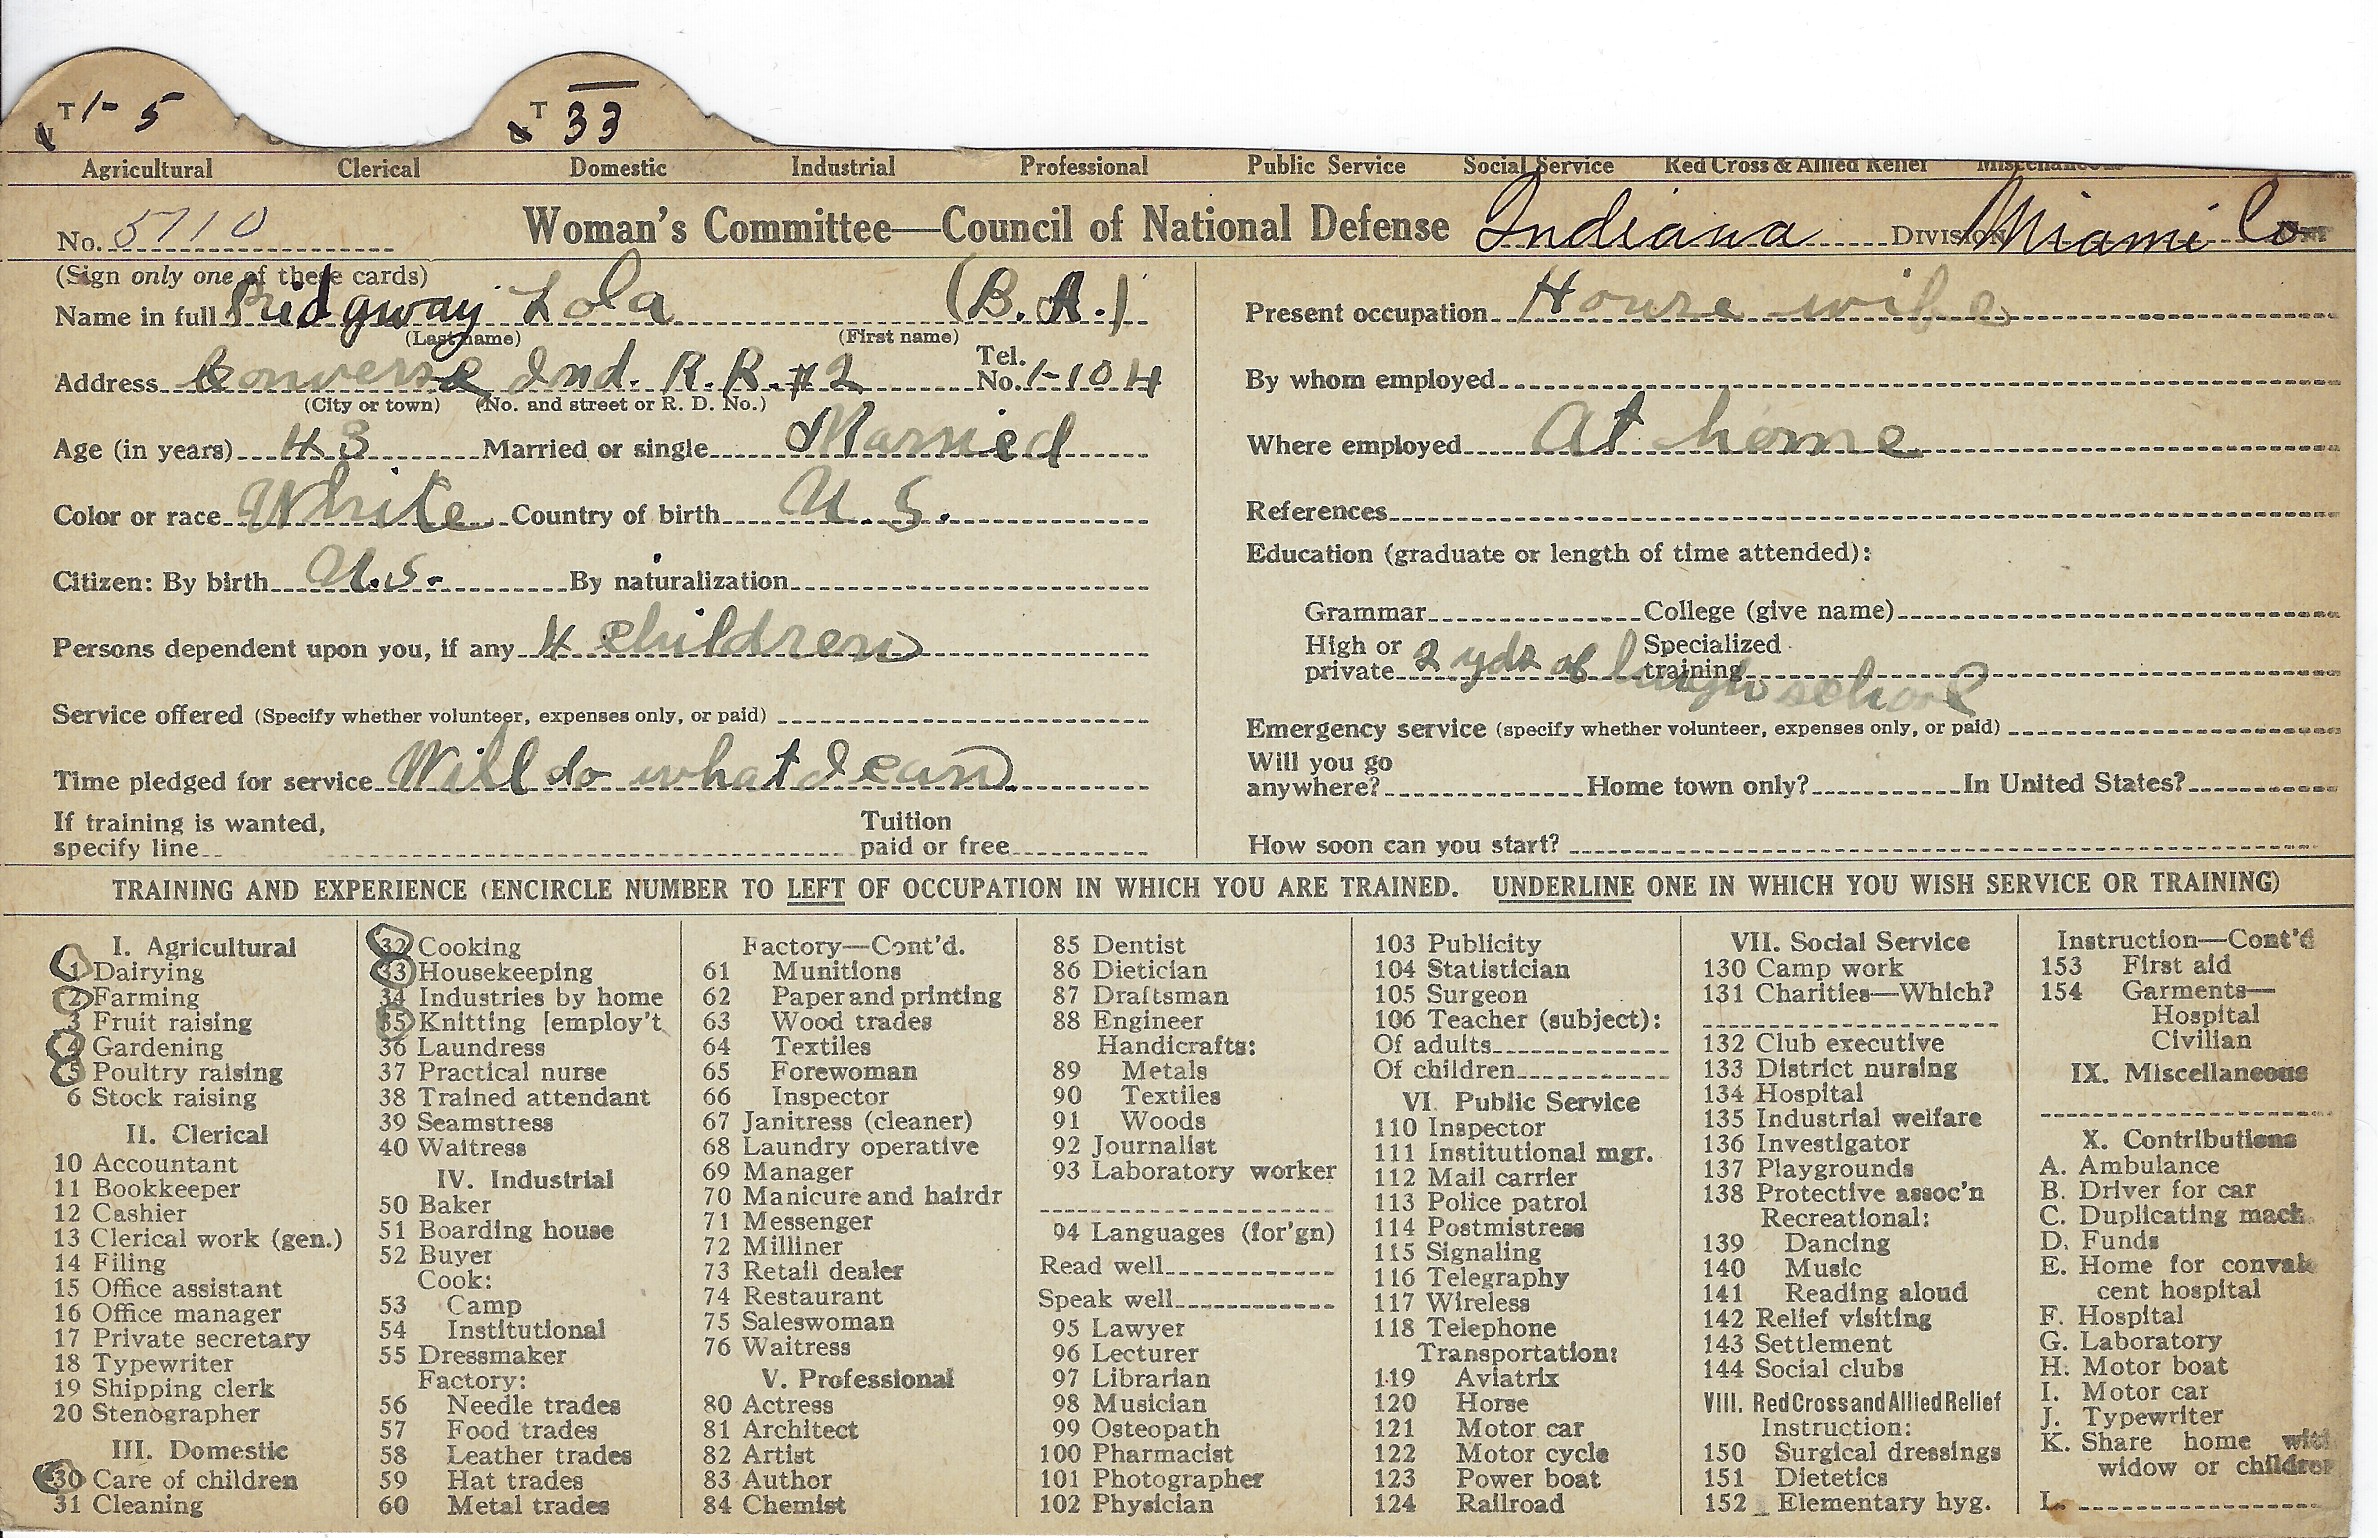 T 1- 5
T 33
Agricultural Clerical Domestic Industrial Professional Public Service Social Service Red Cross & Allied Relief Miscellaneous
No. 5710 Woman's Committee—Council of National Defense Indiana Division Miami Co
(Sign only one of these cards)
Name in full Ridgway Lola (B.A.)
(Last name) (First name)
Address Converse Ind. R.R. #2 Tel. No. 1-104
(City or town) (No. and street or R. D. No.)
Age (in years) 43 Married or single Married
Color or race White Country of birth U.S.
Citizen: By birth U.S. By naturalization
Persons dependent upon you, if any 4 children
Service offered (Specify whether volunteer, expenses only, or paid)
Time pledged for service Will do what I can
If training is wanted,
specify line
Tuition
paid or free
Present occupation House wife
By whom employed
Where employed At home
References
Education (graduate or length of time attended):
Grammar College (give name)
High or
private 2 of high school
Specialized
training
Emergency service (specify whether volunteer, expenses only, or paid)
Will you go
anywhere? Home town only? In United States?
How soon can you start?
TRAINING AND EXPERIENCE (ENCIRCLE NUMBER TO LEFT OF OCCUPATION IN WHICH YOU ARE TRAINED. UNDERLINE ONE IN WHICH YOU WISH SERVICE OR TRAINING)
I. Agricultural
1 Dairying
2 Farming
3 Fruit raising
4 Gardening
5 Poultry raising
6 Stock raising
II. Clerical
10 Accountant
11 Bookkeeper
12 Cashier
13 Clerical work (gen.)
14 Filing
15 Office assistant
16 Office manager
17 Private secretary
18 Typewriter
19 Shipping clerk
20 Stenographer
III. Domestic
30 Care of children
31 Cleaning
32 Cooking
33 Housekeeping
34 Industries by home
35 Knitting [employ't
36 Laundress
37 Practical nurse
38 Trained attendant
39 Seamstress
40 Waitress
IV. Industrial
50 Baker
51 Boarding house
52 Buyer
Cook:
53 Camp
54 Institutional
55 Dressmaker
Factory:
56 Needle trades
57 Food trades
58 Leather trades
59 Hat trades
60 Metal trades
Factory—Cont'd.
61 Munitions
62 Paper and printing
63 Wood trades
64 Textiles
65 Forewoman
66 Inspector
67 Janitress (cleaner)
68 Laundry operative
69 Manager
70 Manicure and hairdr
71 Messenger
72 Milliner
73 Retail dealer
74 Restaurant
75 Saleswoman
76 Waitress
V. Professional
80 Actress
81 Architect
82 Artist
83 Author
84 Chemist
85 Dentist
86 Dietician
87 Draftsman
88 Engineer
Handicrafts:
89 Metals
90 Textiles
91 Woods
92 Journalist
93 Laboratory worker
94 Languages (for'gn)
Read well
Speak well
95 Lawyer
96 Lecturer
97 Librarian
98 Musician
99 Osteopath
100 Pharmacist
101 Photographer
102 Physician
103 Publicity
104 Statistician
105 Surgeon
106 Teacher (subject):
Of adults
Of children
VI. Public Service
110 Inspector
111 Institutional mgr.
112 Mail carrier
113 Police patrol
114 Postmistress
115 Signaling
116 Telegraphy
117 Wireless
118 Telephone
Transportation:
119 Aviatrix
120 Horse
121 Motor car
122 Motor cycle
123 Power boat
124 Railroad
VII. Social Service
130 Camp work
131 Charities—Which?
132 Club executive
133 District nursing
134 Hospital
135 Industrial welfare
136 Investigator
137 Playgrounds
138 Protective assoc'n
Recreational:
139 Dancing
140 Music
141 Reading aloud
142 Relief visiting
143 Settlement
144 Social clubs
VIII. Red Cross and Allied Relief
Instruction:
150 Surgical dressings
151 Dietetics
152 Elementary hyg.
Instruction—Cont'd
153 First aid
154 Garments—
Hospital
Civilian
IX. Miscellaneous
X. Contributions
A. Ambulance
B. Driver for car
C. Duplicating mach.
D. Funds
E. Home for convales
cent hospital
F. Hospital
G. Laboratory
H. Motor boat
I. Motor car
J. Typewriter
K. Share home with
widow or children
L.